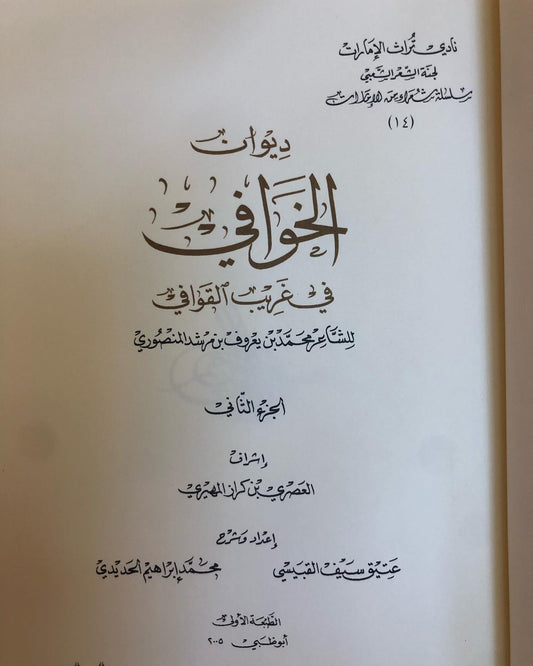 نادي تراث الإمارات
لجنة الشعر الشعبي
سلسلة شعراء من الإمارات
(١٤)
ديوان
الخوافي
في غريب القوافي
للشاعر محمد بن يعروف بن مرشد المنصوري
الجزء الثاني
إشراف
العصري بن كراز المهيري
إعداد وشرح
عتيق سيف القبيسي محمد إبراهيم الحديدي
الطبعة الأولى
أبوظبي ٢٠٠٥